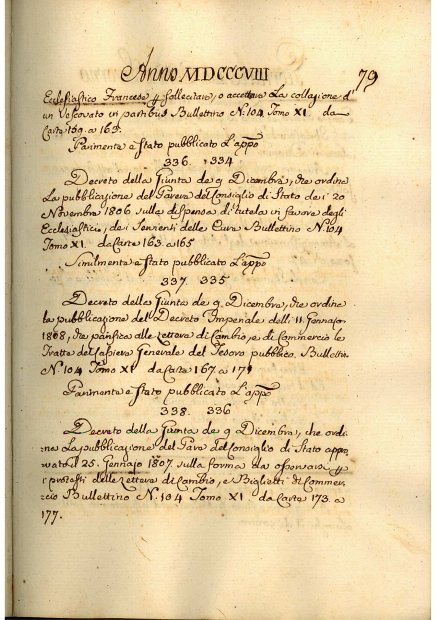 Anno MDCCCVIII 79
Ecclesiastico Francese p sollecitare, o accettare La collazione d'
un Vescovato in partibus Bullettino N. 104 Tomo XI. da
Carte 159. a 163.
Parimente è stato pubblicato L'appo
336. 334
Decreto della Giunta de 9 Dicembre, che ordina
La pubblicazione del Parere del Consiglio di Stato de i 20
Novembre 1806 sulla dispensa di tutela in favore degli
Ecclesiastici, dei Serventi delle Cure Bullettino N. 104
Tomo XI. da Carte 163. a 165
Similmente è stato pubblicato L'appo
337. 335
Decreto della Giunta de 9 Dicembre, che ordina
la pubblicazione del Decreto Imperiale delli 11. Gennajo
1808, che parifica alle Lettere di Cambio, e di Commercio le
Tratte del Cassiere Generale del Tesoro pubblico. Bullettin.
N. 104 Tomo XI da Carte 167 a 171
Parimente è stato pubblicato L'appo
338. 336
Decreto della Giunta de 9 Dicembre, che ordi-
na La pubblicazione del Pare del Consiglio di Stato appro
vato il 25. Gennajo 1807. sulla forma da osservarsi p
i protesti delle Lettere di Cambio, e Biglietti di Commer-
cio Bullettino N. 104 Tomo XI da Carte 173. a
177.